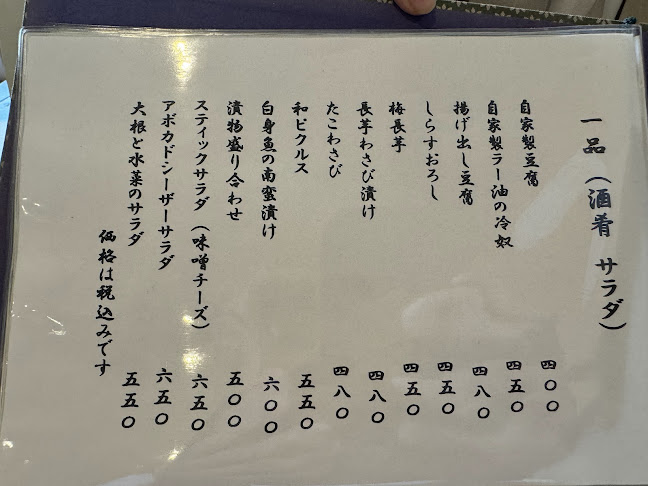 一品（酒肴 サラダ）
自家製豆腐 四〇〇
自家製ラー油の冷奴 四五〇
揚げ出し豆腐 四八〇
しらすおろし 四五〇
梅長芋 四五〇
長芋わさび漬け 四八〇
たこわさび 四八〇
和ピクルス 五五〇
白身魚の南蛮漬け 六〇〇
漬物盛り合わせ 五〇〇
スティックサラダ（味噌チーズ） 六五〇
アボカドシーザーサラダ 六五〇
大根と水菜のサラダ 五五〇
価格は税込みです